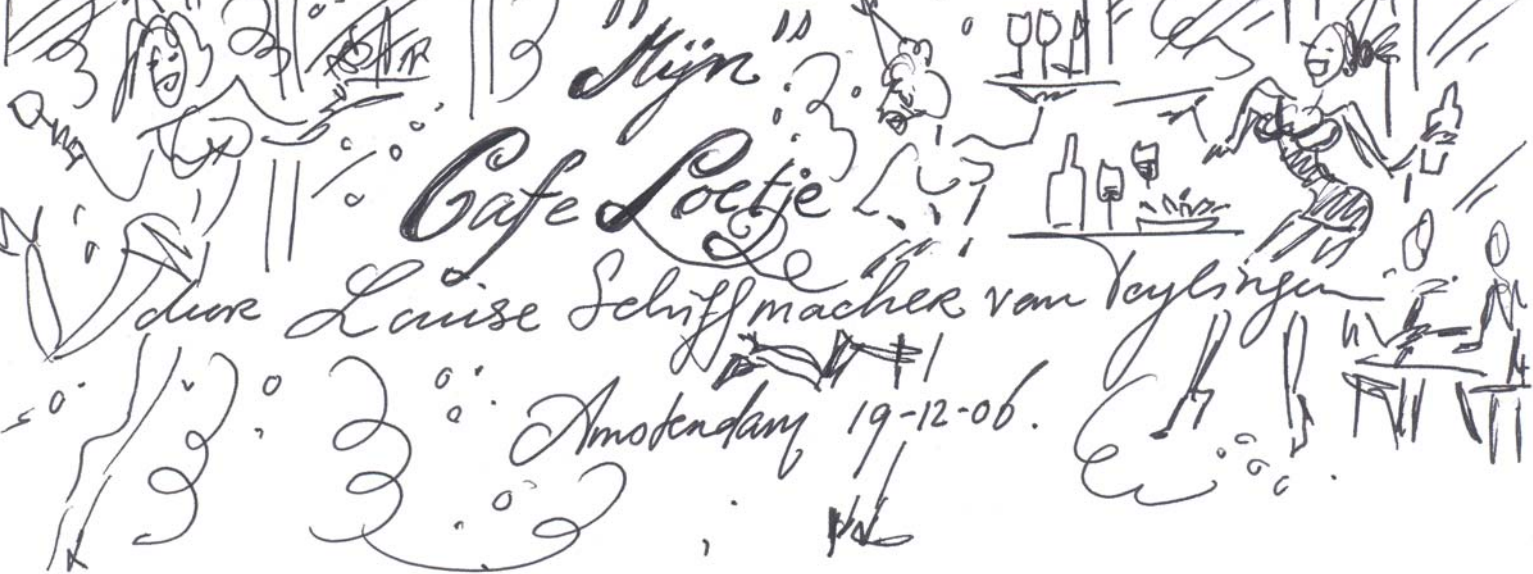 "Mijn"
Cafe Loetje
door Louise Schiffmacher van Teylingen
Amsterdam 19-12-06.